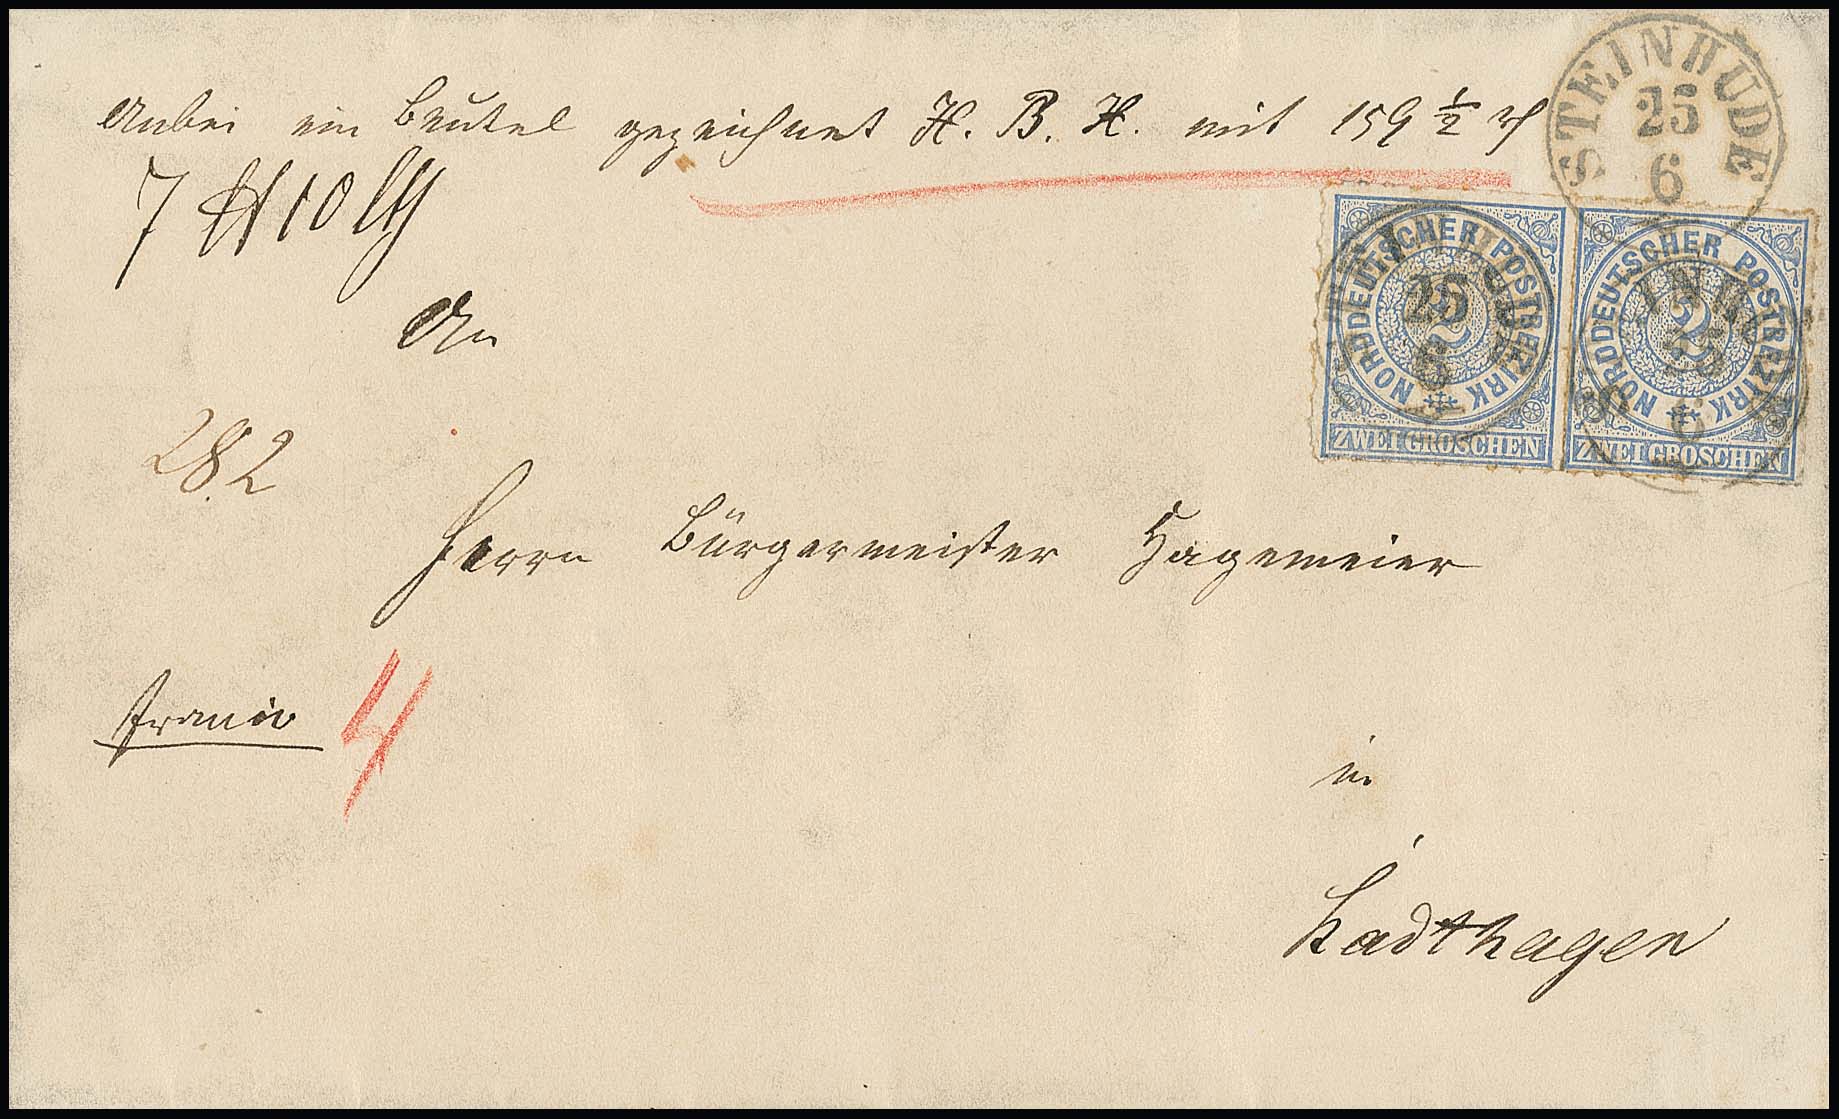 Anbei ein Beutel gezeichnet H. B. H. mit 159 1/2 rℓ
7 ℔ 10 Lth
An
282
Herrn Bürgermeister Hagemeier
franco 4
in
Stadthagen
STEINHUDE
25
6
NORDDEUTSCHER POSTBEZIRK
2
ZWEI GROSCHEN
25
6
NORDDEUTSCHER POSTBEZIRK
2
ZWEI GROSCHEN
25
6